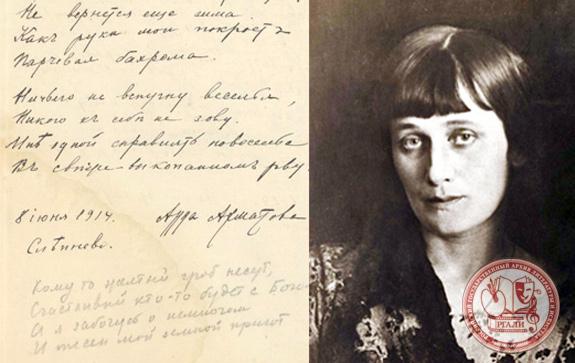 Не вернется еще зима
Какъ руки мои покроетъ
Парчевая бахрома.
Ничьего не вспугну веселья,
Никого къ себѣ не зову.
Мнѣ одной справлять новоселье
Въ свѣже выкопанномъ рву.
8 іюня 1914. Анна Ахматова
Слѣпнево.
Кому то желтый гроб несут,
Счастливый кто-то будет с Богом
И я забочусь о немногом
И тесен мой земной приют
РОССИЙСКИЙ ГОСУДАРСТВЕННЫЙ АРХИВ ЛИТЕРАТУРЫ И ИСКУССТВА
РГАЛИ